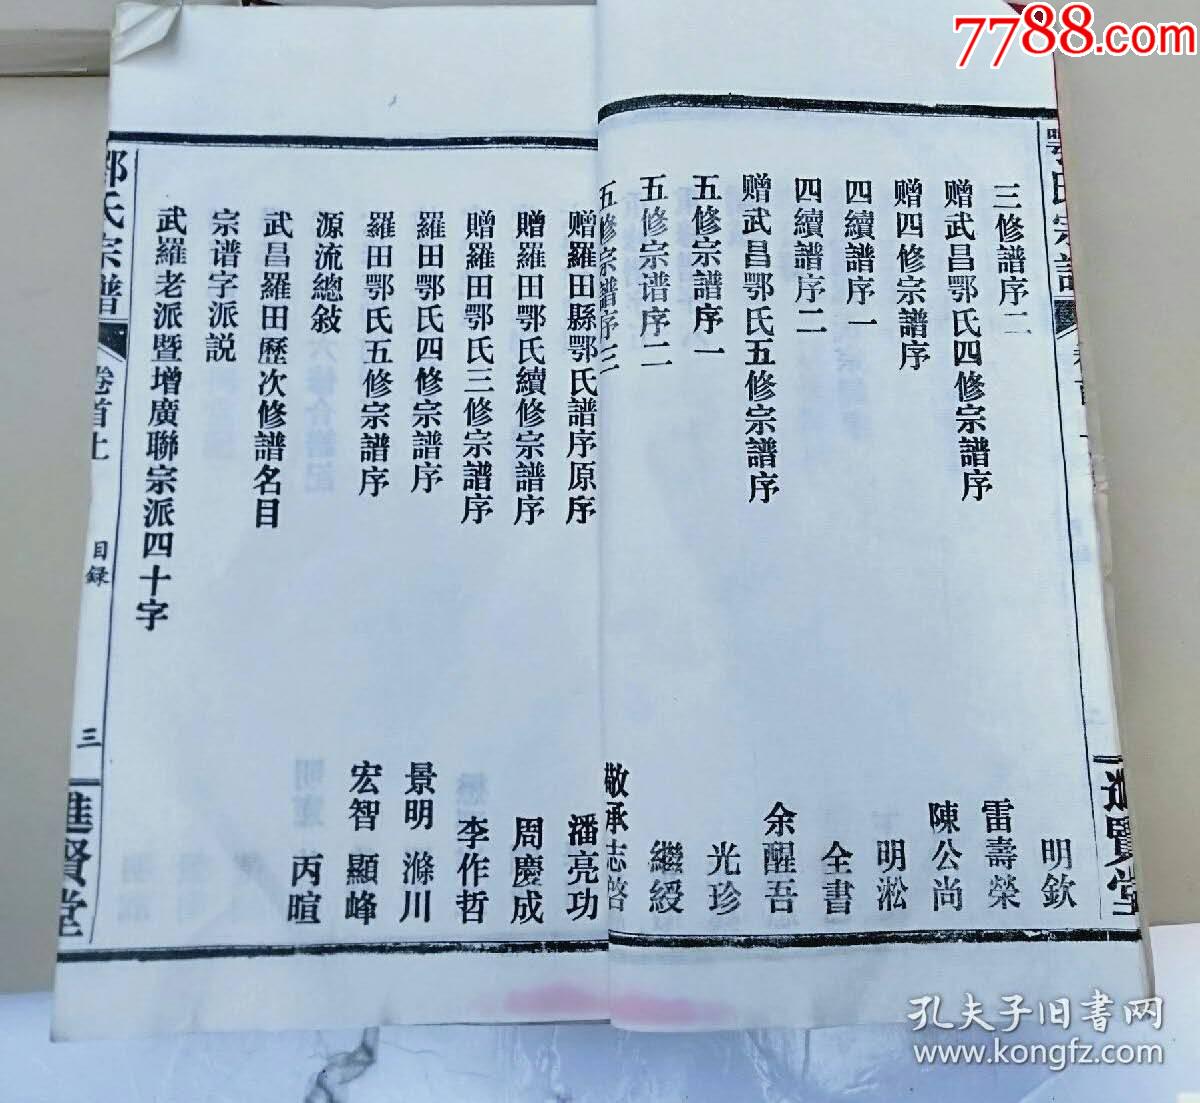 7788.com
鄂氏宗譜
進賢堂
三修譜序二 明欽
赠武昌鄂氏四修宗譜序 雷壽榮
赠四修宗譜序 陳公尚
四續譜序一 明淞
四續譜序二 全書
赠武昌鄂氏五修宗譜序 余醒吾
五修宗譜序一 光珍
五修宗谱序二 繼綬
五修宗譜序三 敬承志啓
赠羅田縣鄂氏譜序原序 潘亮功
贈羅田鄂氏續修宗譜序 周慶成
贈羅田鄂氏三修宗譜序 李作哲
羅田鄂氏四修宗譜序 景明 滌川
羅田鄂氏五修宗譜序 宏智 顯峰
源流總敍 丙暄
武昌羅田歷次修譜名目
宗谱字派説
武羅老派暨增廣聯宗派四十字
鄂氏宗譜 卷首上 目録 三 進賢堂
孔夫子旧书网
www.kongfz.com